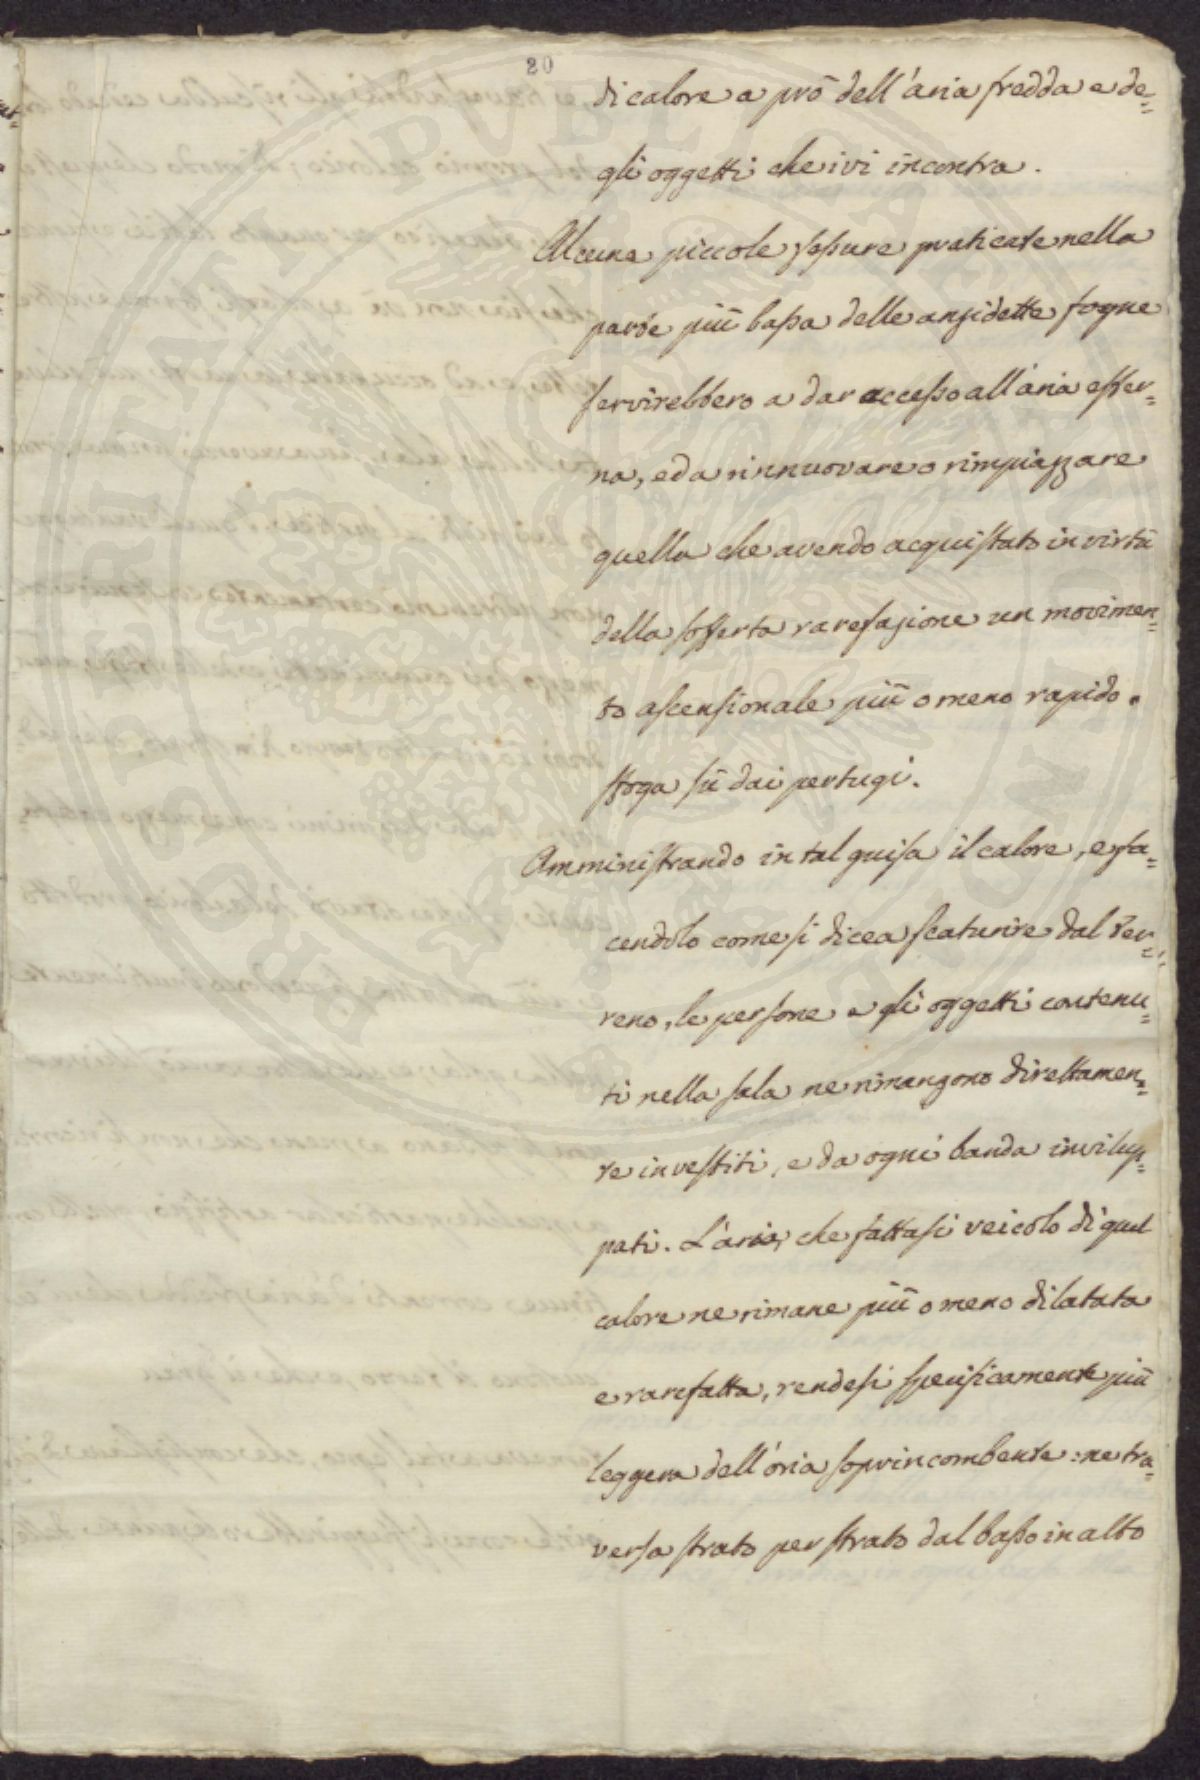 20
di calore a prò dell'aria fredda e de=
gli oggetti che ivi incontra.
Alcune piccole feſsure praticate nella
parte più baſsa delle anzidette fogne
ſervirebbero a dar acceſso all'aria eſter=
na, ed a rinnuovare o rimpiazzare
quella che avendo acquiſtato in virtù
della ſofferta rarefazione un movimen=
to aſcenſionale più o meno rapido.
sfoga sù dai pertugi.
Amminiſtrando in tal guiſa il calore, e fa=
cendolo come ſi dicea ſcaturire dal ter=
reno, le perſone e gli oggetti contenu=
ti nella ſala ne rimangono direttamen=
te inveſtiti, e da ogni banda invilup=
pati. L'aria, che fattaſi veicolo di quel
calore ne rimane più o meno dilatata
e rarefatta, rendeſi ſpecificamente più
leggera dell'aria ſoprincombente: ne tra=
verſa ſtrato per ſtrato dal baſso in alto
BIBLIOTHECA PUBLICA